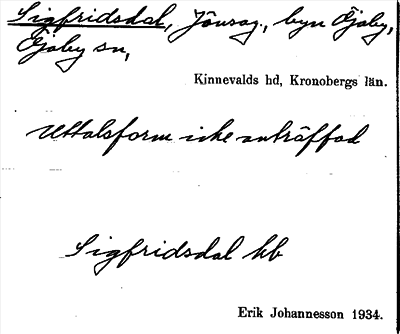 Sigfridsdal, Jönsog., byn Öjaby,
Öjaby sn,
Kinnevalds hd, Kronobergs län.
Uttalsform icke anträffad
Sigfridsdal hb
Erik Johannesson 1934.